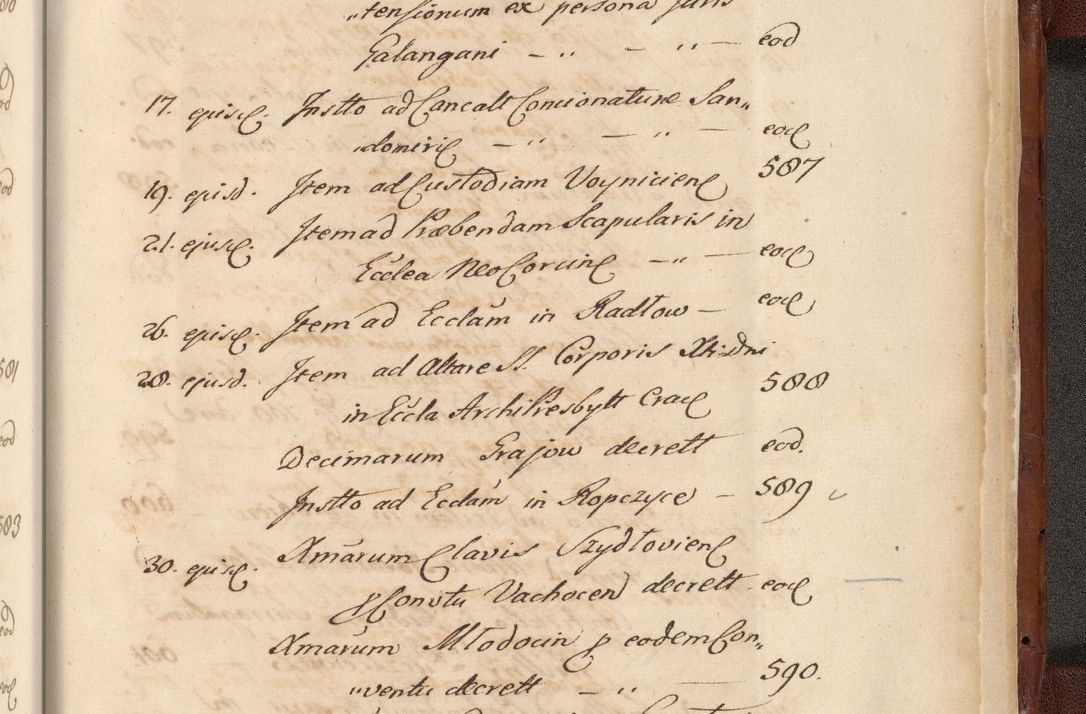 „tensionum ex persona Juris
Galangani – „ – „ – eod
17. ejusd. Instto ad Cancalt Concionaturæ San„
„domirie – „ – „ – eod
19. ejusd. Item ad Custodiam Voyniciens 587
21. ejusd. Item ad Præbendam Scapularis in
Ecclea NeoCorcins – „ – eod
26. ejusd. Item ad Ecclam in Radłow – eod
28. ejusd. Item ad Altare SS. Corporis Xti Dni
in Eccla ArchiPresbytt Crac 588
Decimarum Grajow decrett eod.
Instto ad Ecclam in Ropczyce – 589
30. ejusd. Xmarum Clavis Szydłoviens
p Convtu Vachocen decrett eod
Xmarum Młodocin p eodem Con„
„ventu decrett – „ – 590.
581
eod
583
eod
eod